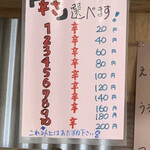 「辛さ」選べます!
1 辛 20円
2 辛 40円
3 辛 60円
4 辛 80円
5 辛 100円
6 辛 120円
7 辛 140円
8 辛 160円
9 辛 180円
10 辛 200円
これ以上はおたずね下さい
え